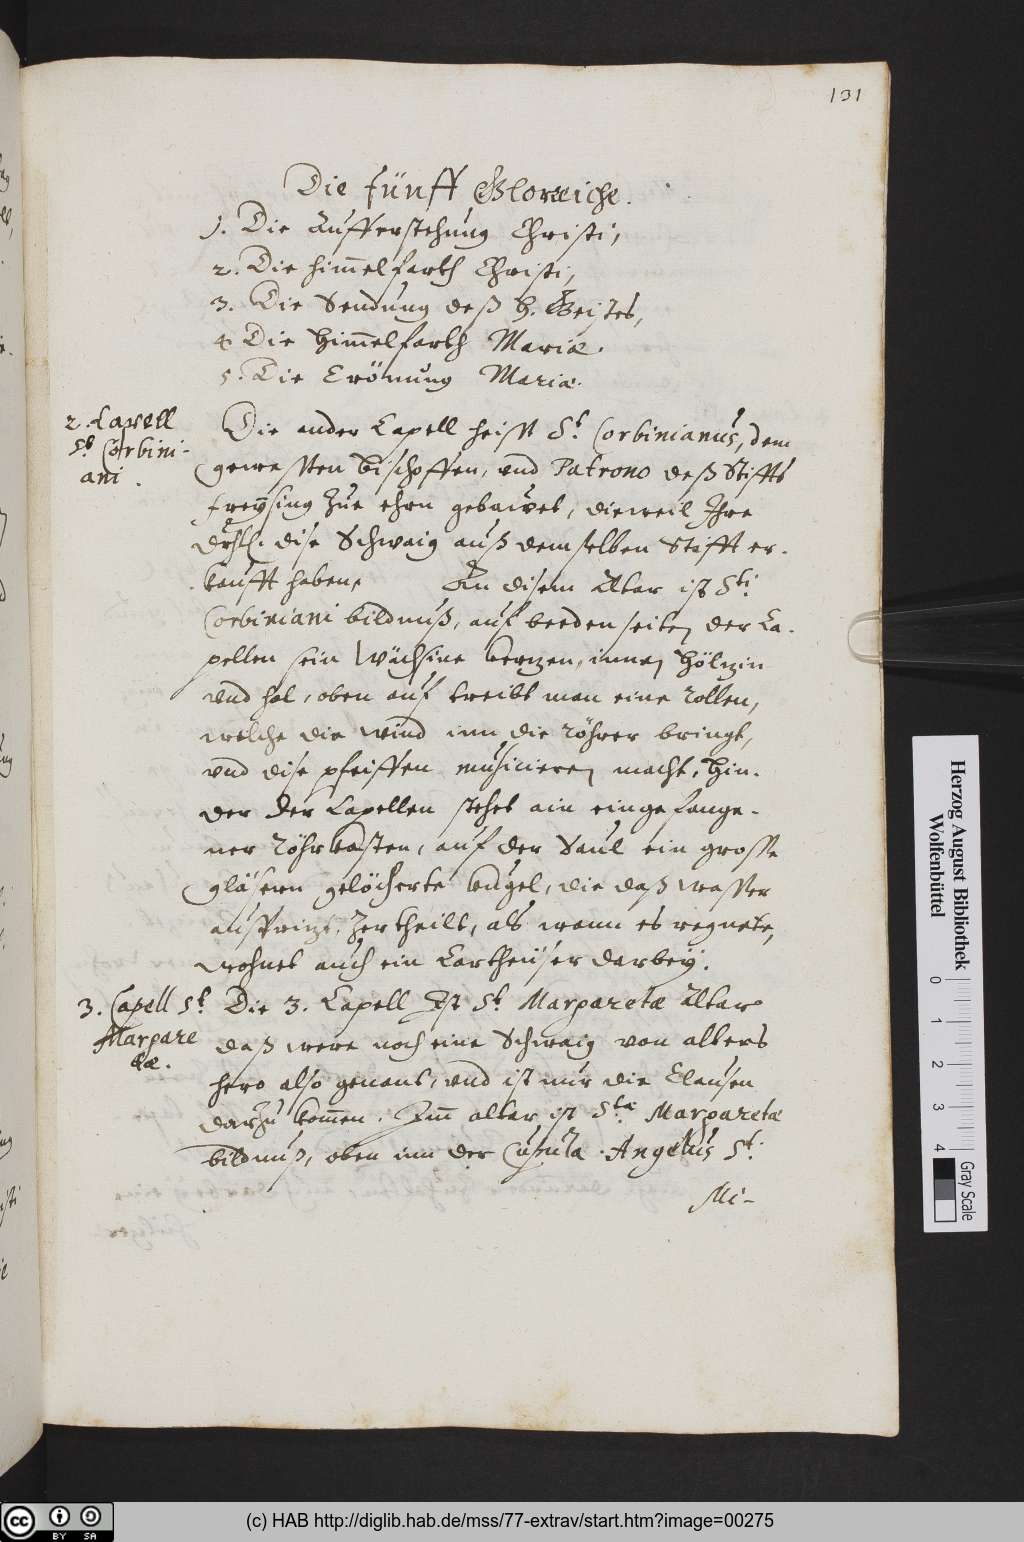 131
Die fünff Glorreiche.
1. Die Aufferstehung Christi,
2. Die himmelfarth Christi,
3. Die Sendung deß H. Geistes,
4. Die Himmelfarth Mariæ.
5. Die Crönung Mariæ.
2. Capell
St. Corbini-
ani.
Die ander Capell heisst St. Corbinianus, dem
gewessten Bischoffen, vnd Patrono deß Stiffts
Freÿsing zue ehrn gebawet, dieweil Ihre
drhl. dise Schwaig auß demselben Stifft er-
kaufft haben, An disem Altar ist Sti
Corbiniani bildnuß, auf beeden seiten der Ca-
pellen sein Wächsine kerzen, innen Hölzin
vnd hol, oben auf treibt man eine rollen,
welche die wind inn die röhrer bringt,
vnd dise pfeiffen musicieren macht, Hin-
der der Capellen stehet ain eingefange-
ner Röhrkasten, auf der Saul ein grosse
gläsern gelöcherte kugel, die daß wasser
ausspritzt, zertheilt, als wann es regnete,
wohnet auch ein Cartheüser darbeÿ.
3. Capell St.
Margare
tæ.
Die 3. Capell Ist St. Margaretæ Altar
daß were noch eine Schwaig von alters
hero also genant, vnd ist nur die Clausen
darzu kommen. Im altar ist Stæ Margaretæ
bildnuß, oben inn der Cupula Angelus St.
Mi-
Herzog August Bibliothek
Wolfenbüttel
0 1 2 3 4
Gray Scale
cc BY SA
(c) HAB http://diglib.hab.de/mss/77-extrav/start.htm?image=00275